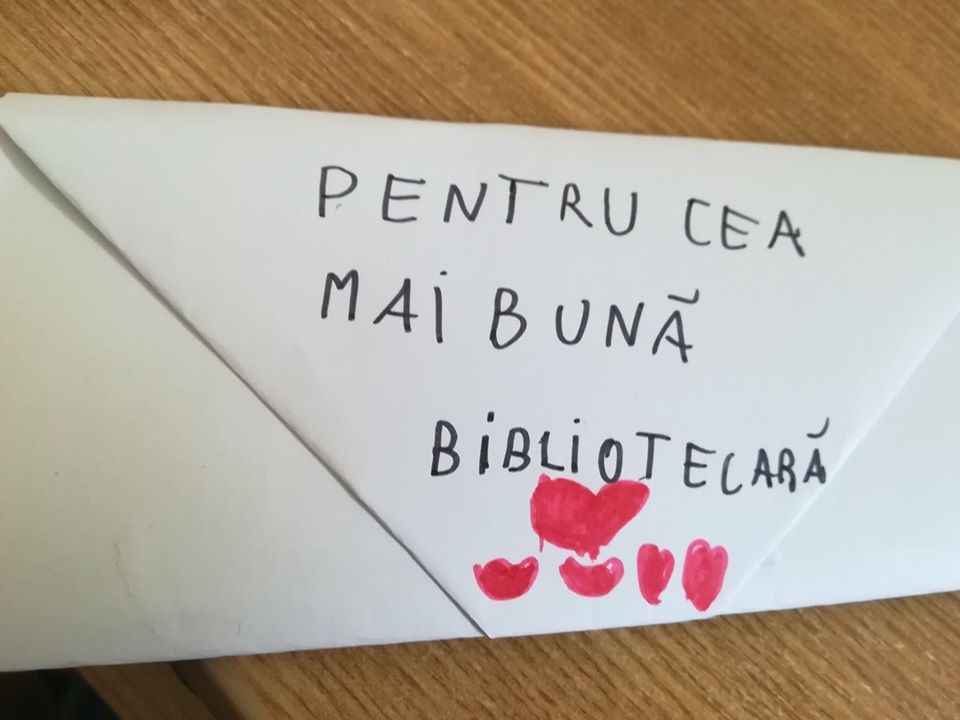 PENTRU CEA
MAI BUNĂ
BIBLIOTECARĂ